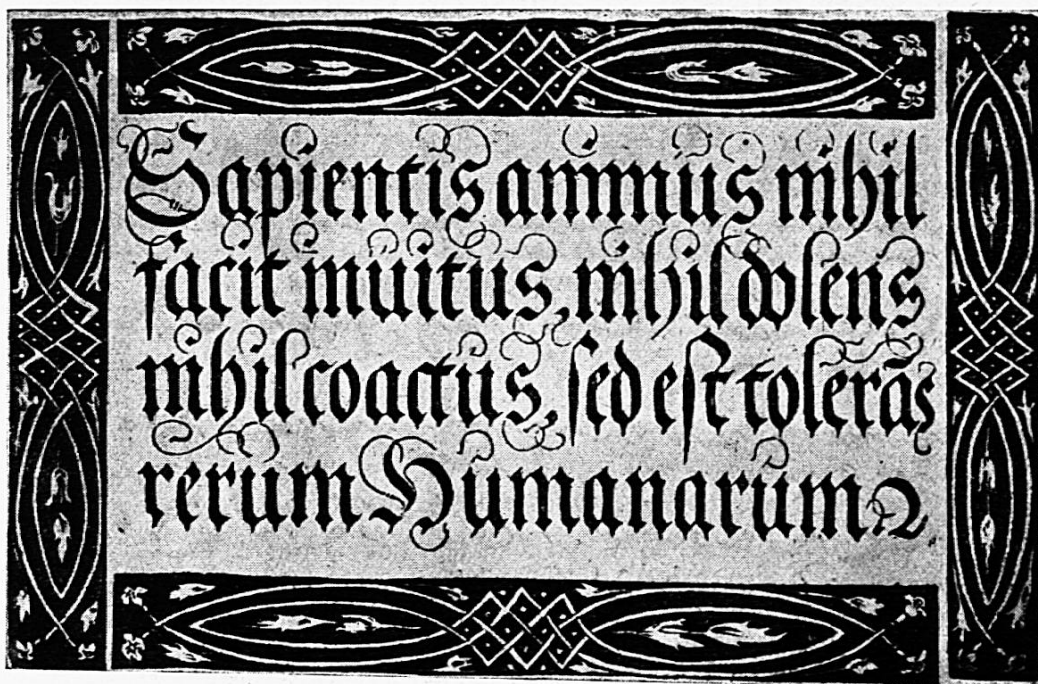 Sapientis animus nihil
facit inuitus, nihil dolens
nihil coactus, sed est tolerãs
rerum Humanarum